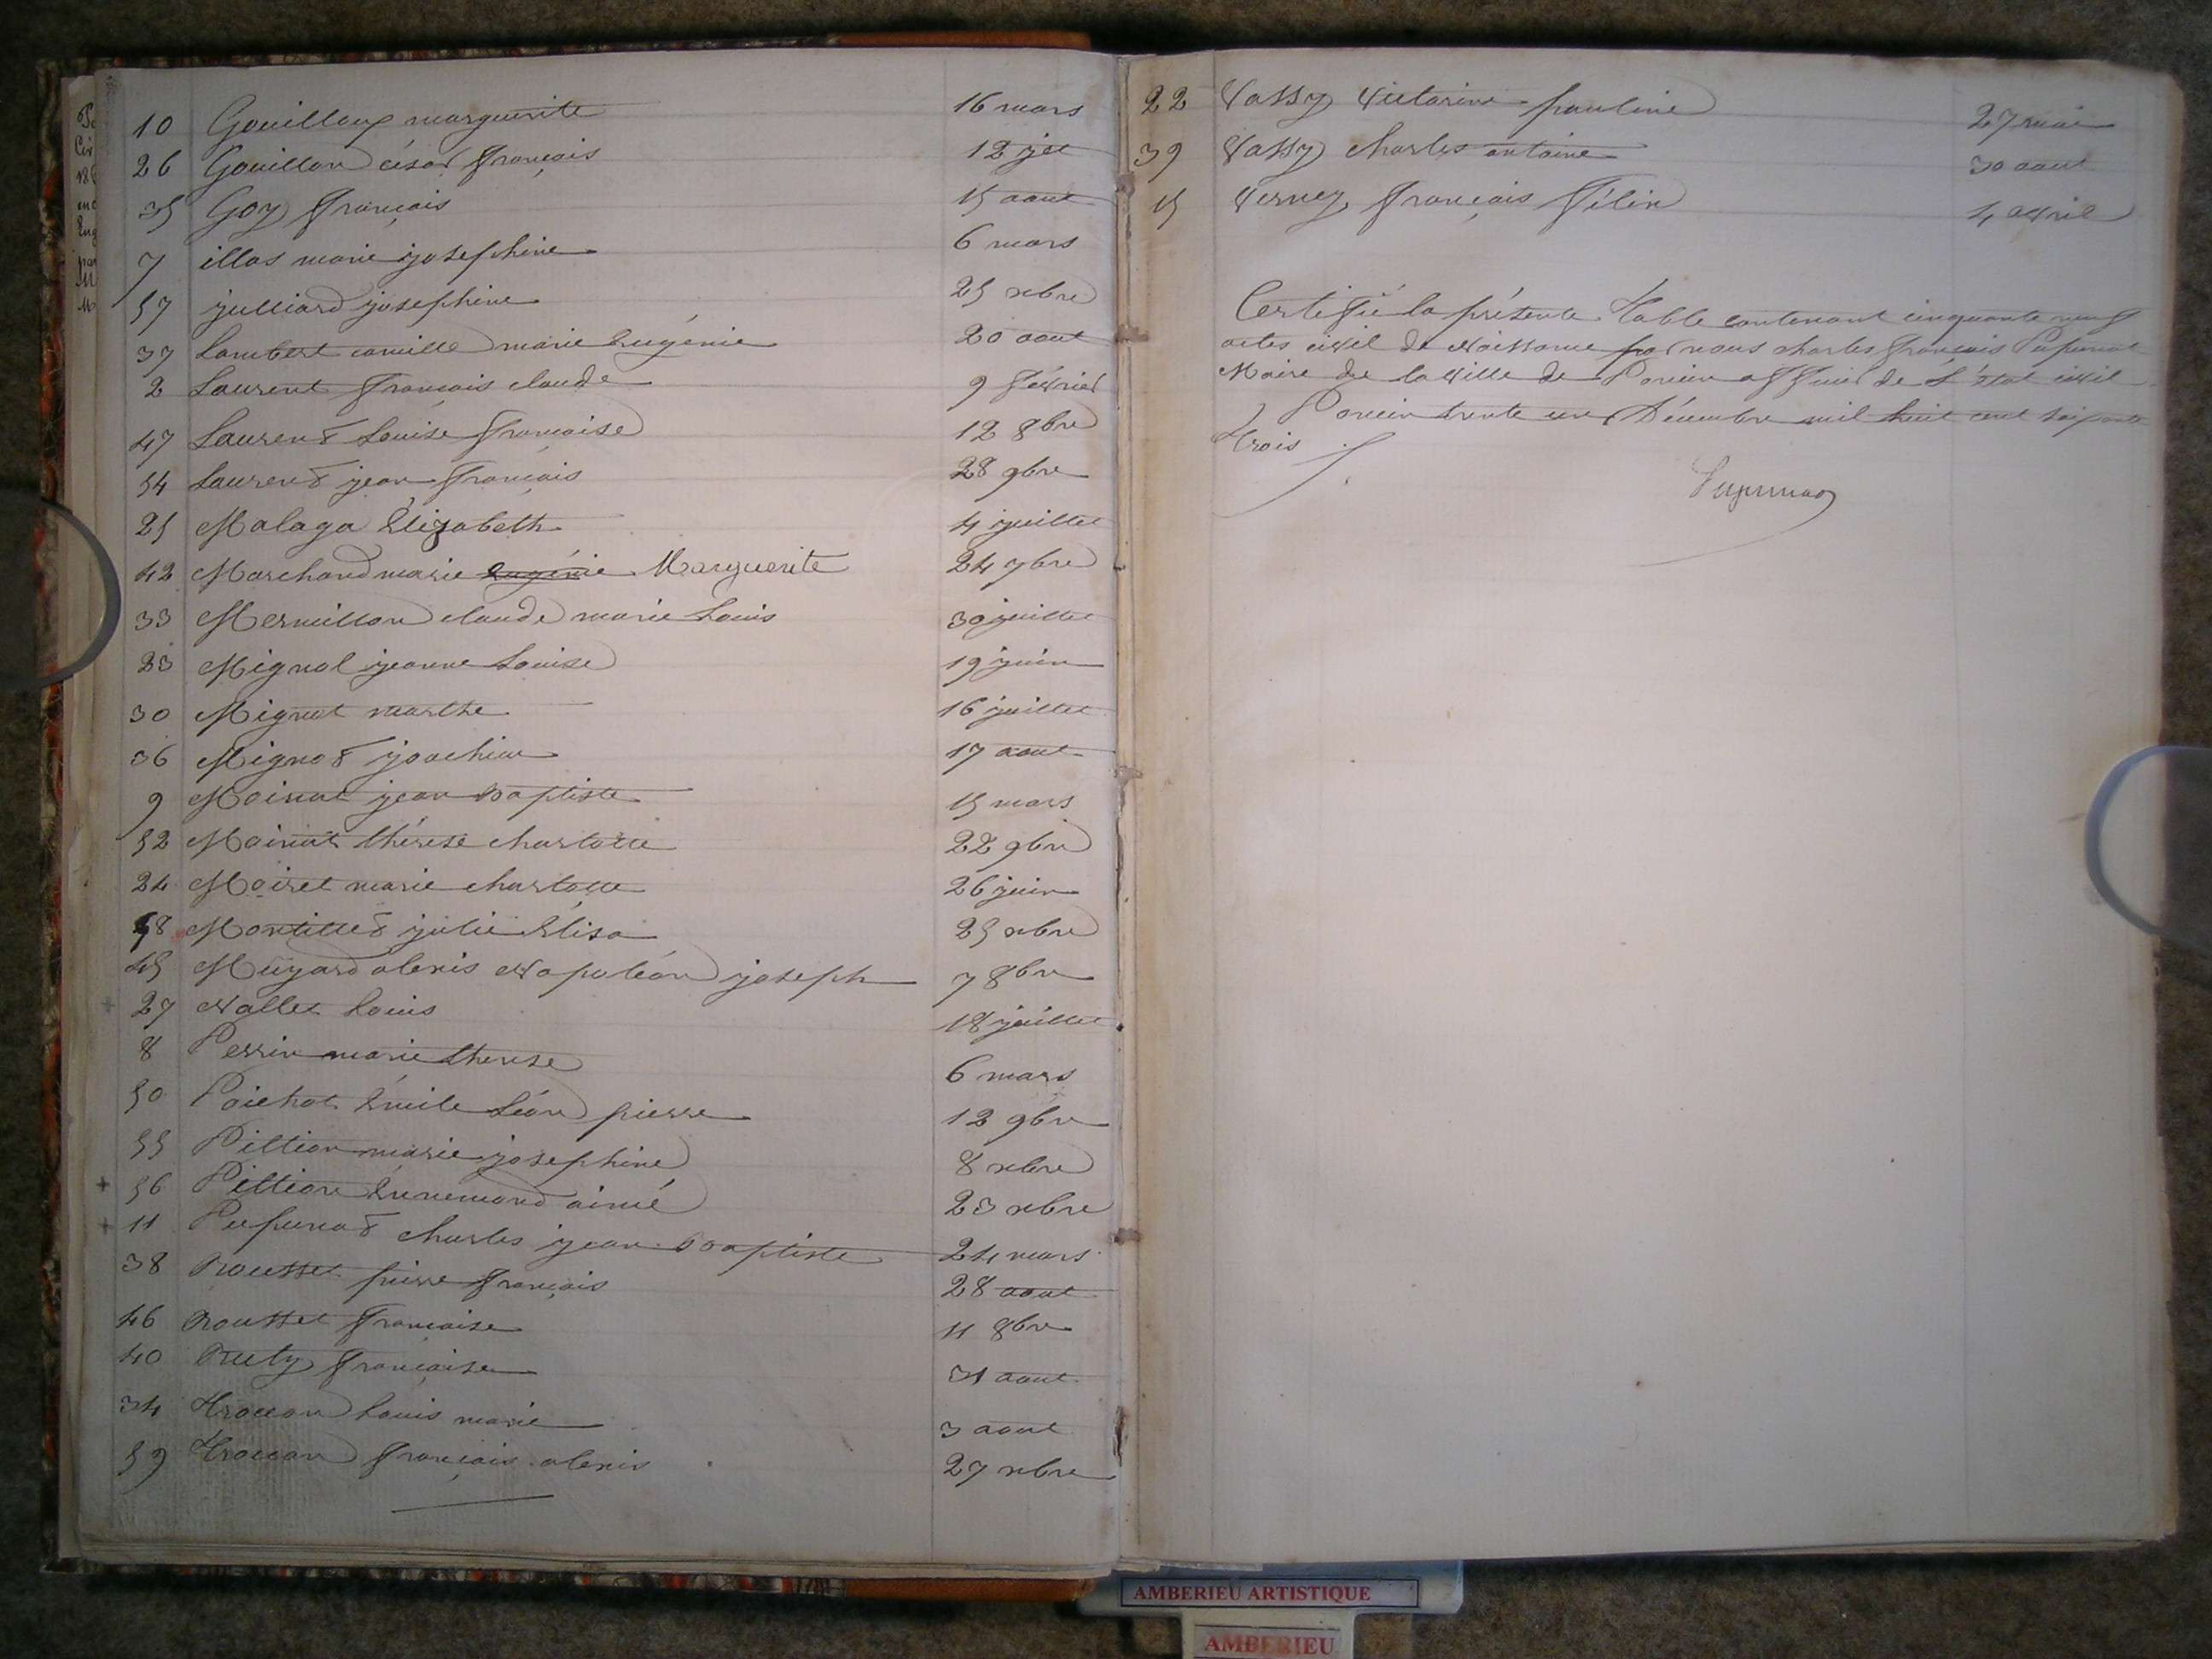 10 Gouilloux marguerite 16 mars
26 Gouillon césar françois 12 jet
35 Goy françois 15 aout
7 illas marie josephine 6 mars
57 julliard josephine 25 xbre
37 Lambert camille marie Eugénie 20 aout
2 Laurent françois claude 9 février
47 Laurent Louise françoise 12 8bre
54 Laurent jean françois 28 9bre
25 Malaga Elizabeth 4 juillet
42 Marchand marie Eugénie Marguerite 24 7bre
33 Mermillon claude marie Louis 30 juillet
23 Mignot jeanne Louise 19 juin
30 Mignot marthe 16 juillet
36 Mignot joachim 17 aout
9 Moinat jean Baptiste 15 mars
52 Moinat thérèse charlotte 22 9bre
24 Moiret marie charlotte 26 juin
58 Montillet julie Elisa 25 xbre
45 Muzard alexis Napoléon joseph 7 8bre
27 Nallet Louis 18 juillet
8 Perrin marie therese 6 mars
50 Poichot Emile Léon pierre 12 9bre
55 Pittion marie josephine 8 xbre
56 Pittion Ennemond aimé 23 xbre
11 Pupunat charles jean Baptiste 24 mars
38 Rousset pierre françois 28 aout
46 Rousset françoise 11 8bre
40 Ruty françoise 31 aout
34 Trocon Louis marie 3 aout
59 Trocon françois alexis 27 xbre
22 Vassy Victorine pauline 27 mai
39 Vassy charles antoine 30 aout
15 Verney françois Félix 4 avril
Certifié la présente Table contenant cinquante neuf
actes civil de Naissance par nous charles françois Pupunat
Maire de la Ville de Poncin officier de L'état civil
Poncin trente un Décembre mil huit cent soixante
trois
Pupunat
AMBERIEU ARTISTIQUE
AMBERIEU